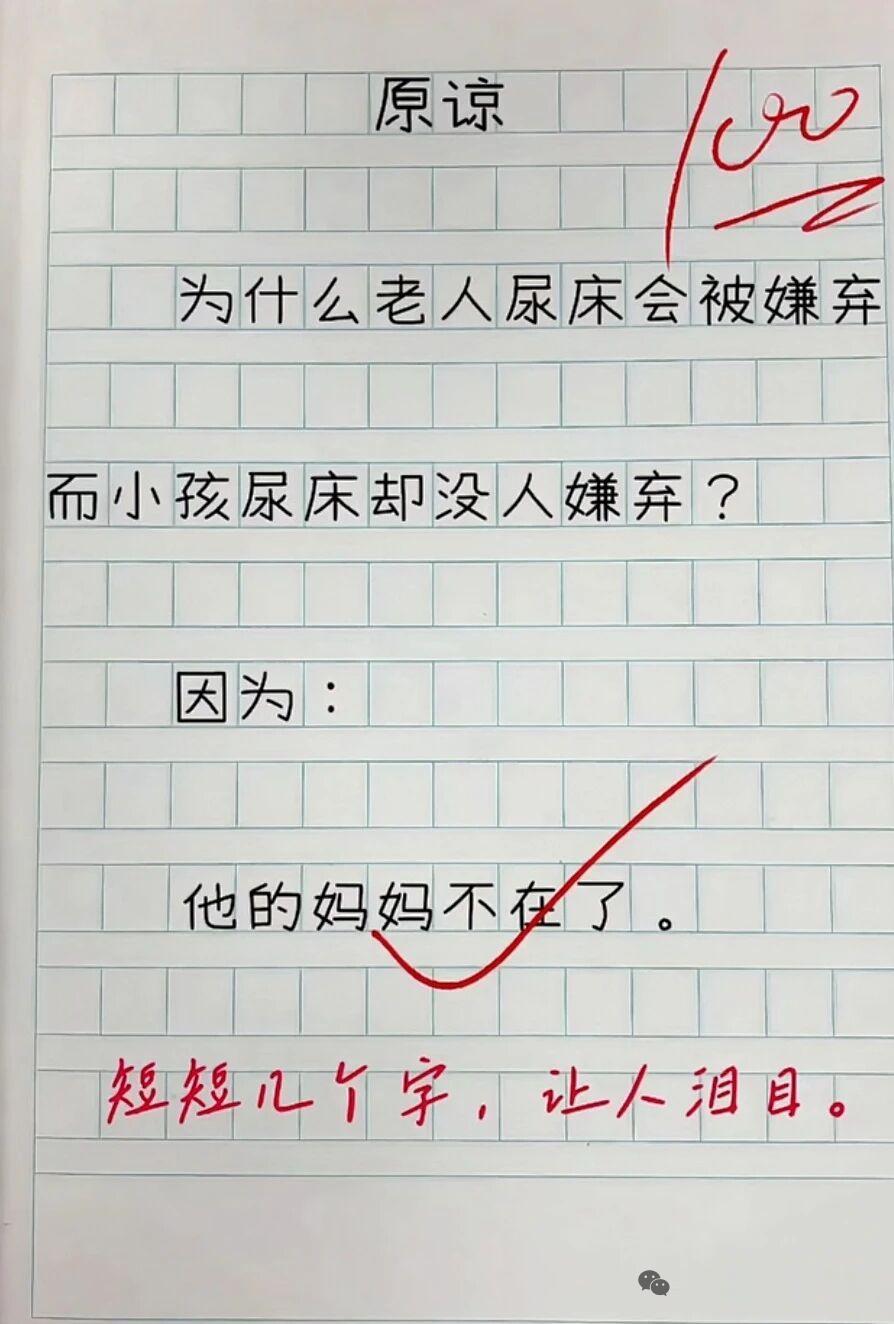 原谅
100
为什么老人尿床会被嫌弃
而小孩尿床却没人嫌弃？
因为：
他的妈妈不在了。
短短几个字，让人泪目。